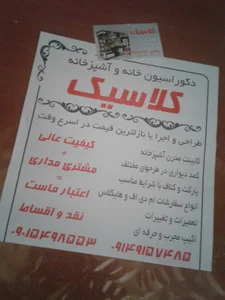 دکوراسیون خانه و آشپزخانه
کلاسیک
طراحی و اجرا با نازلترین قیمت در اسرع وقت
کابینت مدرن آشپزخانه
کمد دیواری در طرحهای مختلف
پارکت و کناف با شرایط مناسب
انواع سفارشات ام دی اف و هایگلاس
تعمیرات و تغییرات
اکیپ مجرب و حرفه ای
کیفیت عالی
+
مشتری مداری
=
اعتبار ماست
نقد و اقساط
۰۹۱۴۹۱۵۷۴۸۵
۰۹۰۱۵۴۹۸۵۵۳